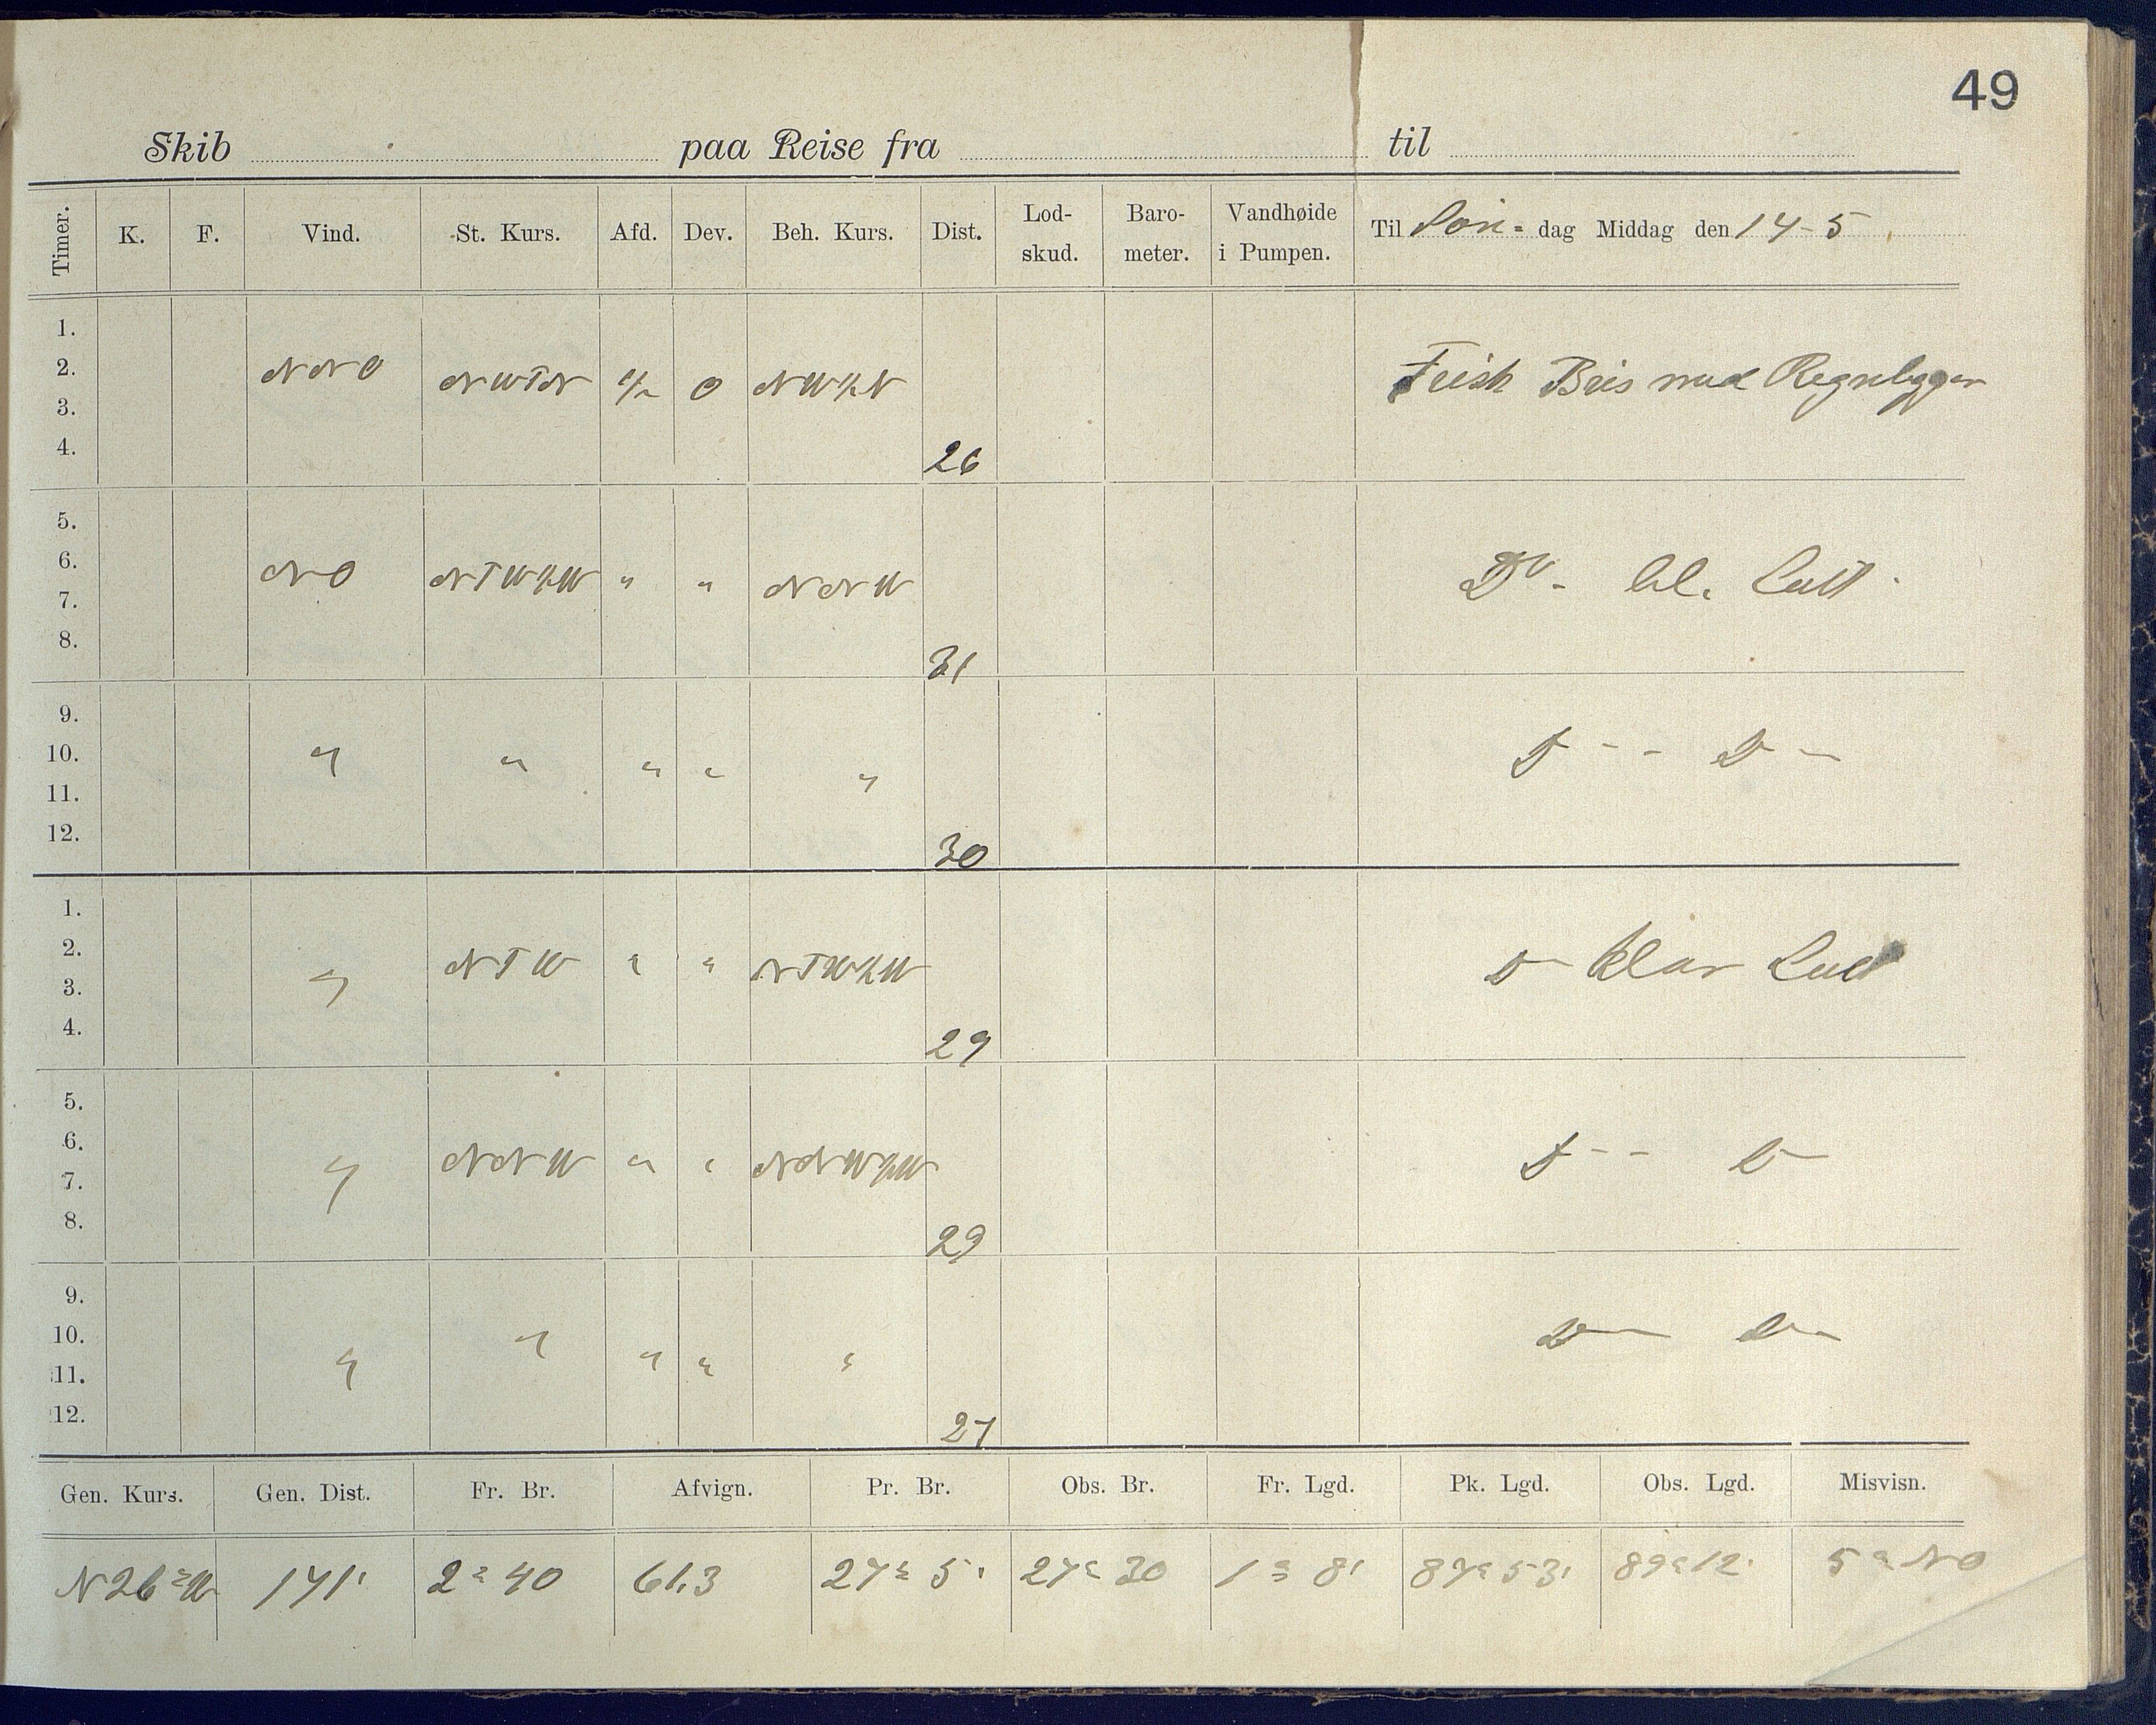 49
Skib paa Reise fra til
Timer. K. F. Vind. St. Kurs. Afd. Dev. Beh. Kurs. Dist. Lod-skud. Baro-meter. Vandhøide i Pumpen. Til Søn- dag Middag den 14-5
1.
2. NNO NWTN 1/2 0 NW1/2N Frisk Bris med Regnbyger
3.
4. 26
5.
6. NO NTW1/2W " " NNW Do - bl. Luft
7.
8. 31
9.
10. " " " " " D - - D -
11.
12. 30
1.
2. " NTW " " NTW1/2W D klar Luft
3.
4. 29
5.
6. " NNW " " NNW1/2W D - - D -
7.
8. 29
9.
10. " " " " " D - D -
11.
12. 27
Gen. Kurs. Gen. Dist. Fr. Br. Afvign. Pr. Br. Obs. Br. Fr. Lgd. Pk. Lgd. Obs. Lgd. Misvisn.
N26°W 171' 2°40 61.3 27° 5' 27° 30 1° 8' 87°53' 89°12' 5° NO